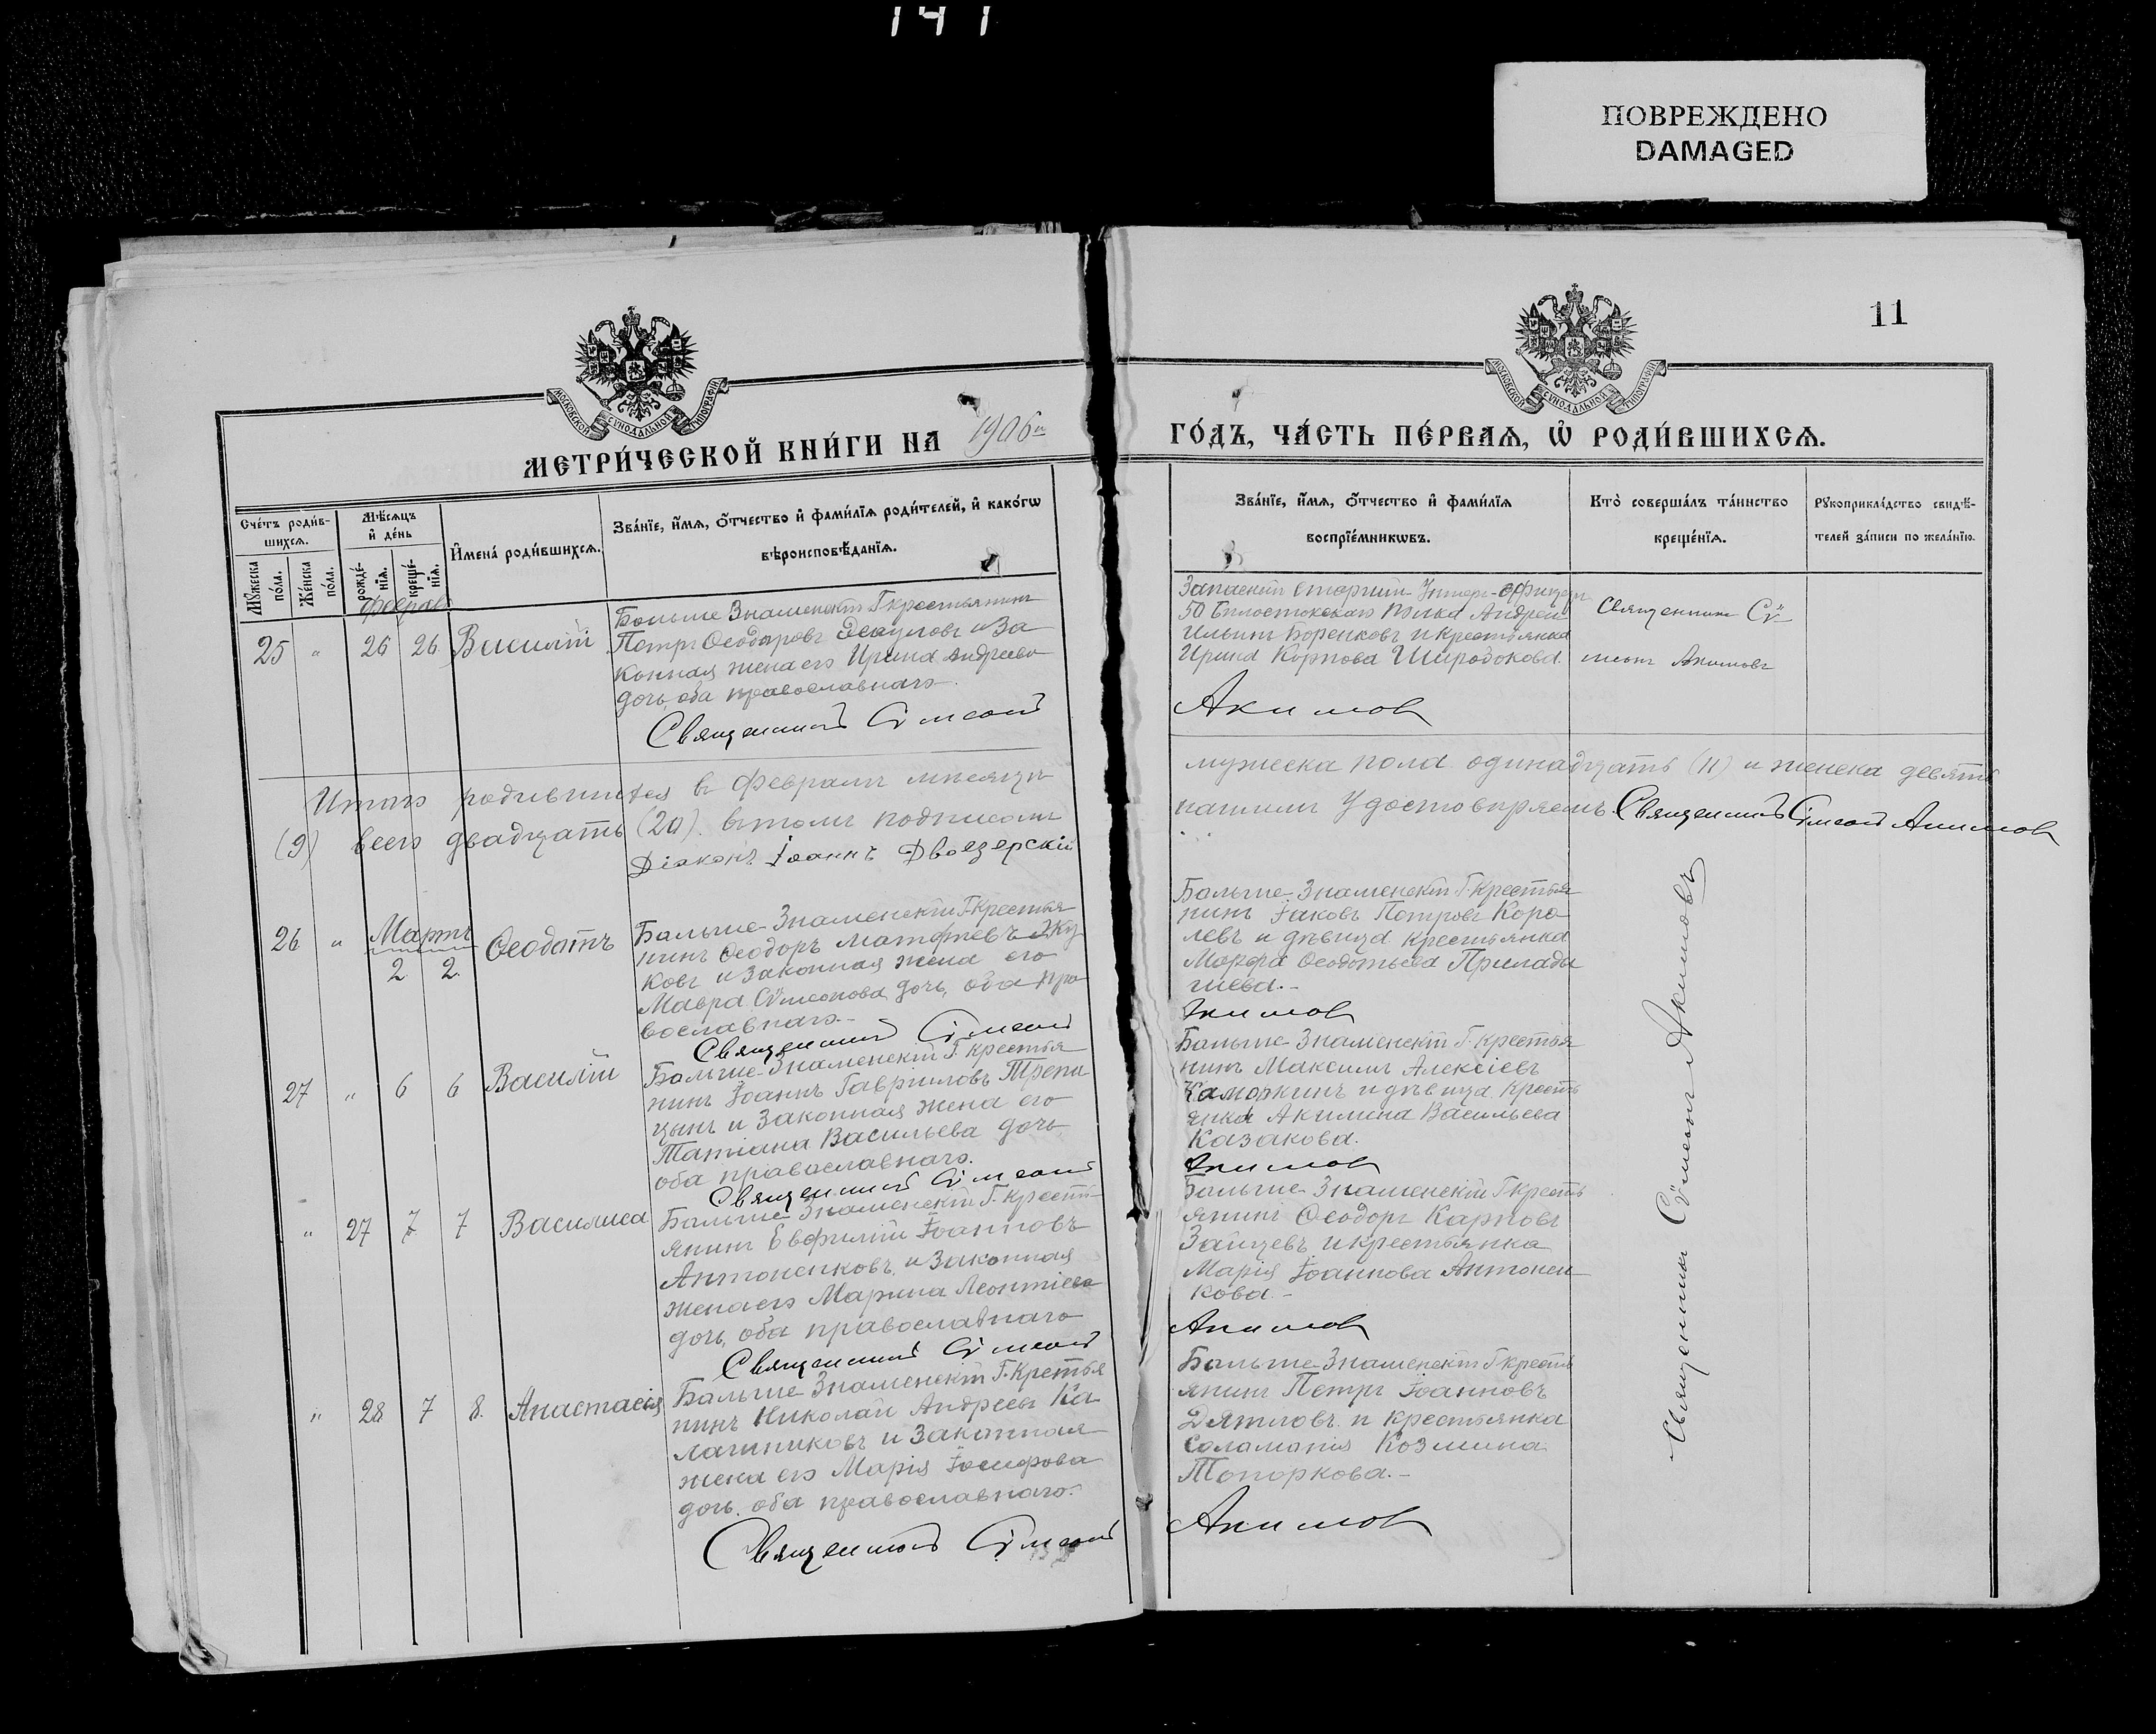 141
ПОВРЕЖДЕНО
DAMAGED
11
МОСКОВСКОЙ СѴНОДАЛЬНОЙ ТИПОГРАФІИ
МОСКОВСКОЙ СѴНОДАЛЬНОЙ ТИПОГРАФІИ
МЕТРИ́ЧЕСКОЙ КНИ́ГИ НА 1906й
ГО́ДЪ, ЧА́СТЬ ПЕ́РВАѦ, Ѡ҆ РОДИ́ВШИХСѦ.
Сче́тъ роди́в-
шихсѧ.
Мꙋ́жеска по́ла.
Же́нска по́ла.
Мѣ́сѧцъ
и҆ де́нь
рожде́-
нїѧ.
креще́-
нїѧ.
И҆мена̀ роди́вшихсѧ.
Зва́нїе, и҆́мѧ, ѻ҆́тчество и҆ фами́лїѧ роди́телей, и҆ како́гѡ
вѣроисповѣ́данїѧ.
Зва́нїе, и҆́мѧ, ѻ҆́тчество и҆ фами́лїѧ
воспрїе́мникѡвъ.
Кто̀ соверша́лъ та́инство
креще́нїѧ.
Рꙋкоприкла́дство свидѣ́-
телей за́писи по жела́нїю.
Феврал
25 " 26 26 Василій
Больше Знаменскій Г крестьянинъ
Петръ Ѳеодоровъ и за
конная жена его Ирина Андреева
дочь, оба православнаго.
Священникъ Сѵмеонъ
Запасный старшій Унтеръ-офицеръ
50 Бѣлостокскаго полка Андрей
Ильинъ Боренковъ и крестьянка
Ирина Карпова Широбокова.
Акимовъ
Священникъ Сѵ-
меонъ Акимовъ
Итого родившихся въ Февралѣ мѣсяцѣ
мужеска пола одинадцать (11) и женска девять
(9) всего двадцать (20). въ томъ подписомъ
нашимъ Удостовѣряемъ. Священникъ Сѵмеонъ Акимовъ
Діаконъ Іоаннъ Двоезерскій
26 " Мартъ
2. 2.
Ѳеодотъ
Больше-Знаменскій Г-крестья
нинъ Ѳеодоръ Матфіевъ Жу
ковъ и законная жена его
Мавра Сѵмеонова дочь, оба пра
вославнаго.-
Священникъ Сѵмеонъ
Больше-Знаменскій Г. крестья
нинъ Іаковъ Петровъ Коро
левъ и дѣвица крестьянка
Марфа Ѳеодотьева Прилады
шева.-
Акимовъ
27 " 6 6 Василій
Больше-Знаменскій Г. крестья
нинъ Іоаннъ Гавріиловъ Трепи
цынъ и законная жена его
Татіана Васильева дочь
оба православнаго.
Священникъ Сѵмеонъ
Больше Знаменскій Г. крестья
нинъ Максимъ Алексіевъ
Каморкинъ и дѣвица кресть
янка Акилина Васильева
Казакова.
Акимовъ
" 27 7 7 Василиса
Больше Знаменскій Г. кресть-
янинъ Евфимій Іоанновъ
Антоненковъ и законная
жена его Марина Леонтіева
дочь, оба православнаго
Священникъ Сѵмеонъ
Больше-Знаменскій Г кресть
янинъ Ѳеодоръ Карповъ
Зайцевъ и крестьянка
Марія Іоаннова Антонен
кова.-
Акимовъ
" 28 7 8. Анастасія
Больше Знаменскій Г. крестья
нинъ Николай Андреевъ Ка
лашниковъ и законная
жена его Марія Іосифова
дочь, оба православнаго.
Священникъ Сѵмеонъ
Больше-Знаменскій Г кресть
янинъ Петръ Іоанновъ
Дятловъ и крестьянка
Саламанія Козмина
Топоркова.-
Акимовъ
Священникъ Сѵмеонъ Акимовъ